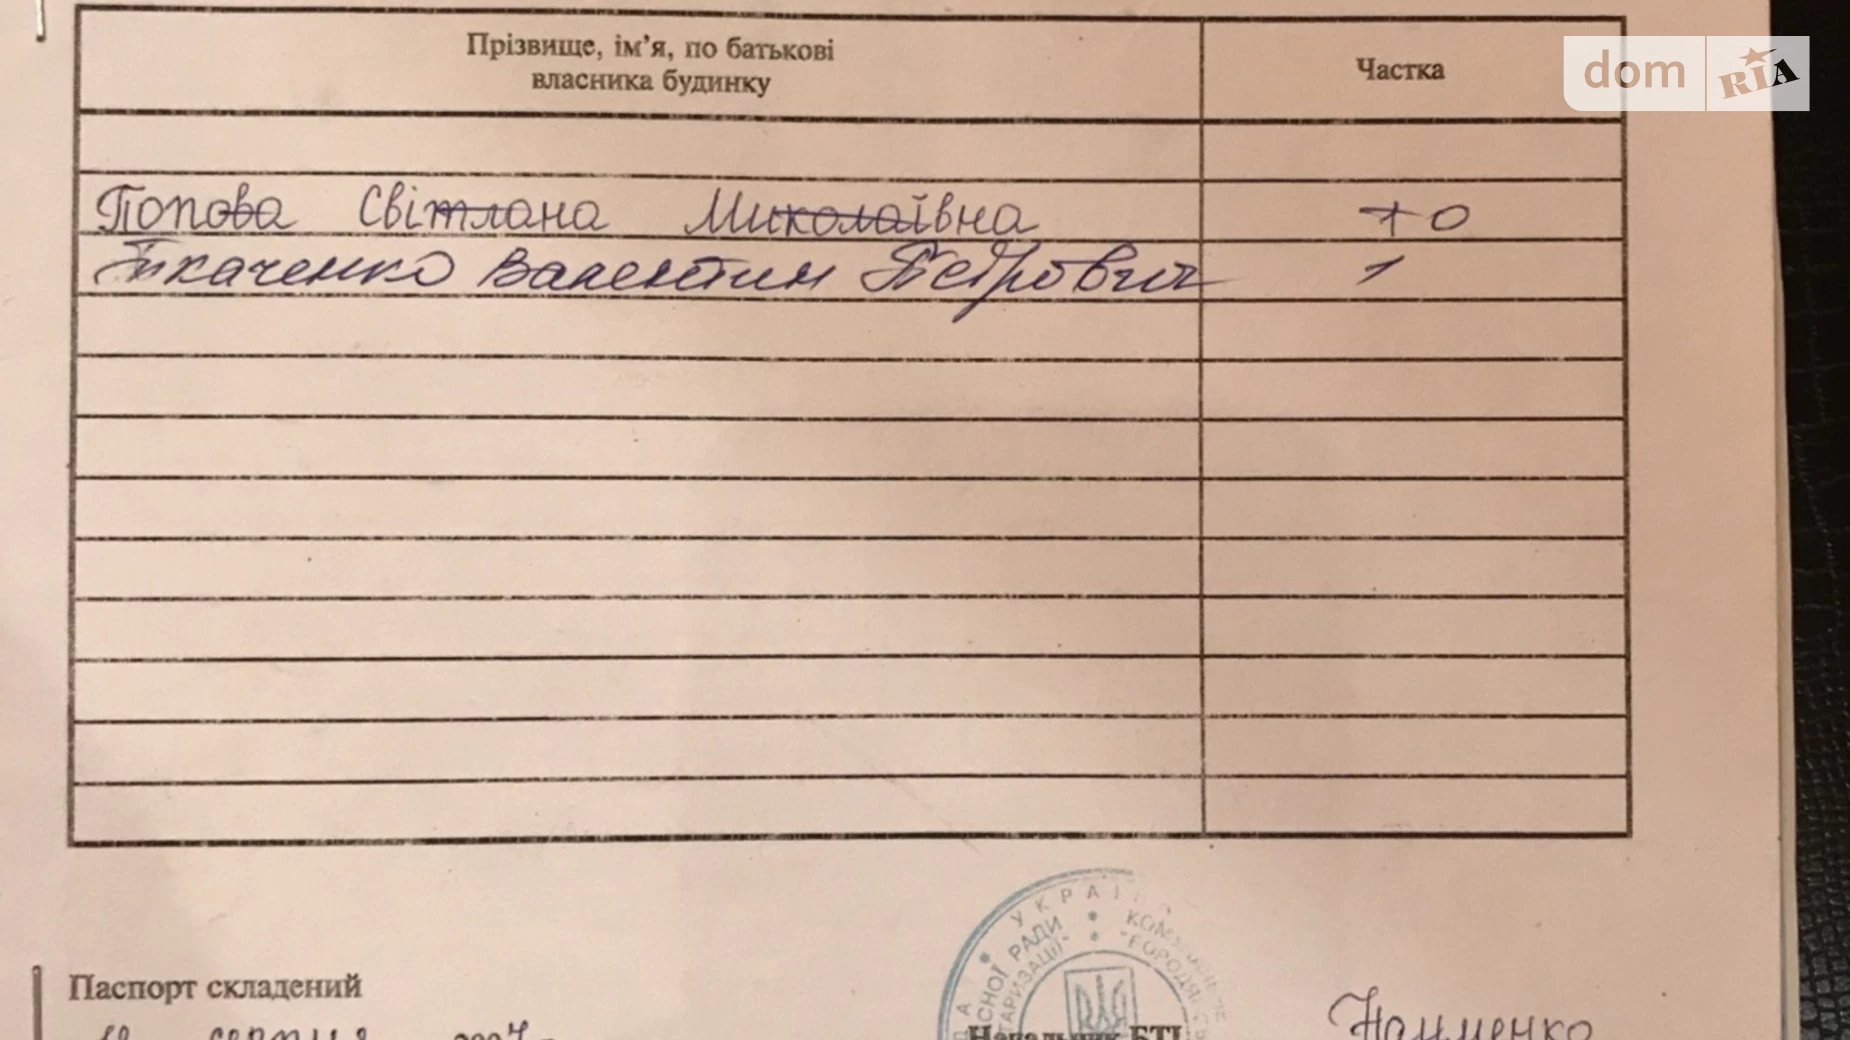 Прізвище, ім’я, по батькові
власника будинку
Частка
dom RIA
Попова Світлана Миколаївна 1 0
Ткаченко Валентин Петрович 1
УКРАЇНА
КОМУНАЛЬНЕ
СНОЇ РАДИ
ТАРИЗАЦІЇ"
Паспорт складений
серпня 2007
Начальник БТІ
Науменко